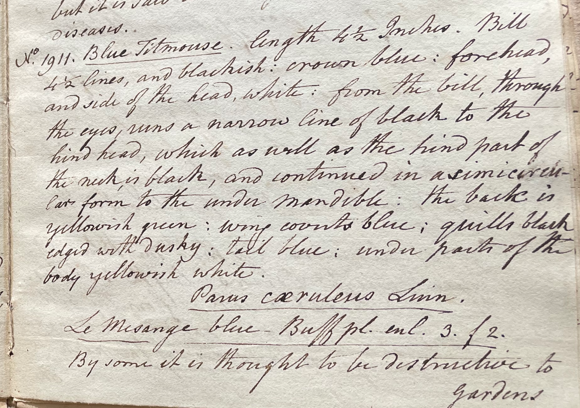 but it is said
diseases..
No. 1911. Blue Titmouse. length 4½ Inches. Bill
4½ lines, and blackish: crown blue: forehead,
and side of the head, white: from the bill, through
the eyes, runs a narrow line of black to the
hind head, which as well as the hind part of
the neck, is black, and continued in a simicircu-
lar form to the under mandible: the back is
yellowish green: wing coverts blue; quills black
edged with dusky: tail blue: under parts of the
body yellowish white.
Parus cæruleus Linn.
Le Mesange blue - Buff pl. enl. 3. f 2.
By some it is thought to be destructive to
Gardens